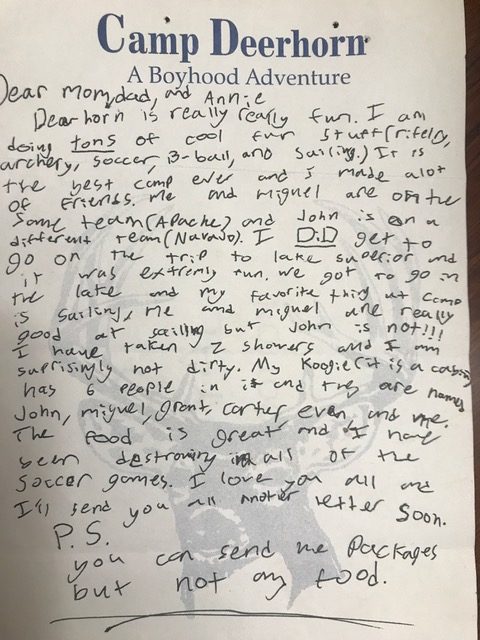 Camp Deerhorn
A Boyhood Adventure
Dear Mom, dad, and Annie
Deerhorn is really really fun. I am
doing tons of cool fun stuff (rifelry,
archery, soccer, B-ball, and sailing.) It is
the best camp ever and I made alot
of friends. Me and Miguel are on the
same team (Apache) and John is on a
different team (Navajo). I DiD get to
go on the trip to lake superior and
it was extremly fun. We got to go in
the lake and my favorite thing at camp
is sailing, me and miguel are really
good at sailing but John is not!!!
I have taken 2 showers and I am
suprisingly not dirty. My Koogie (it is a cabin)
has 6 people in it and they are named
John, miguel, grant, carter even and me.
The food is great and I have
been destroning in all of the
soccer games. I love you all and
I'll send you all another letter soon.
P.S.
you can send me packages
but not any food.